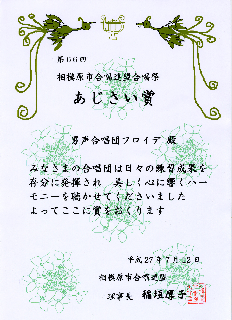 第66回
相模原市合唱連盟合唱祭
あじさい賞
男声合唱団フロイデ 殿
みなさまの合唱団は日々の練習成果を
存分に発揮され 美しく心に響くハー
モニーを聴かせてくださいました
よってここに賞をおくります
平成27年7月12日
相模原市合唱連盟
理事長 稲垣厚子